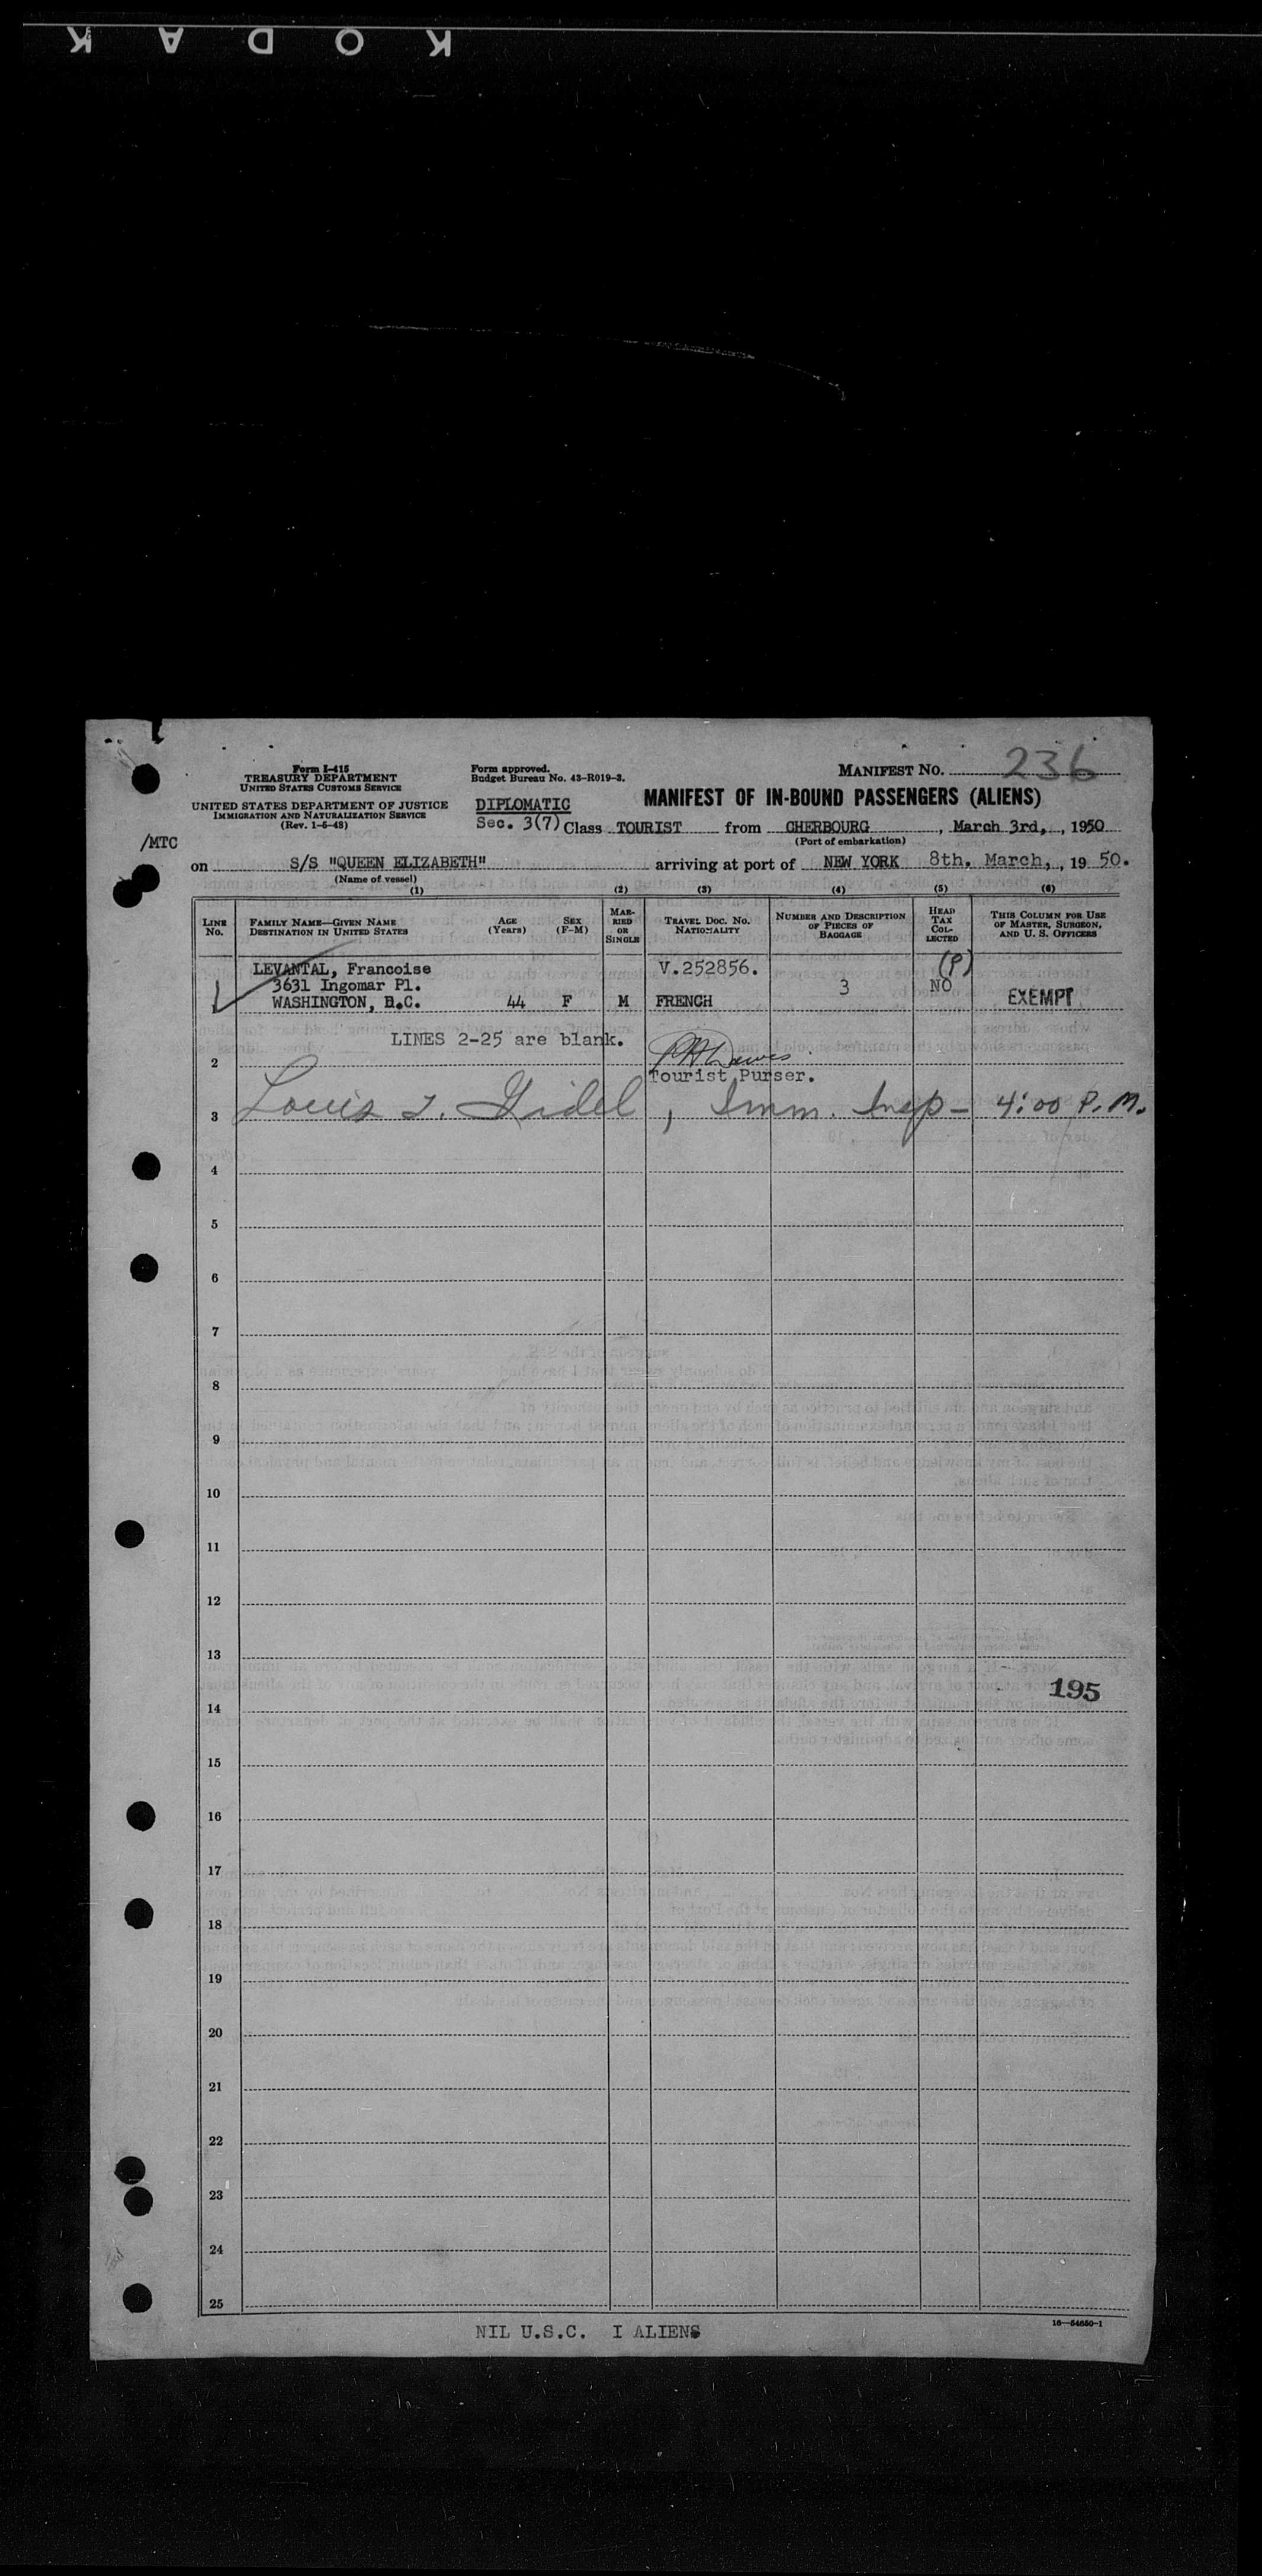 KODAK
Form I-415
TREASURY DEPARTMENT
UNITED STATES CUSTOMS SERVICE
UNITED STATES DEPARTMENT OF JUSTICE
IMMIGRATION AND NATURALIZATION SERVICE
(Rev. 1-5-48)
Form approved.
Budget Bureau No. 43-R019-3.
MANIFEST NO. 236
DIPLOMATIC
MANIFEST OF IN-BOUND PASSENGERS (ALIENS)
Sec. 3(7) Class TOURIST from CHERBOURG, March 3rd,, 1950
(Port of embarkation)
/MTC
on S/S "QUEEN ELIZABETH" arriving at port of NEW YORK 8th. March,, 19 50.
(Name of vessel)
(1) (2) (3) (4) (5) (6)
LINE No. FAMILY NAME—GIVEN NAME DESTINATION IN UNITED STATES AGE (Years) SEX (F-M) MARRIED OR SINGLE TRAVEL DOC. NO. NATIONALITY NUMBER AND DESCRIPTION OF PIECES OF BAGGAGE HEAD TAX COLLECTED THIS COLUMN FOR USE OF MASTER, SURGEON, AND U. S. OFFICERS
LEVANTAL, Francoise V.252856. (P)
3631 Ingomar Pl. 3 NO
WASHINGTON, D.C. 44 F M FRENCH EXEMPT
LINES 2-25 are blank.
2
Tourist Purser.
3 Louis J. Gidel, Imm. Insp - 4:00 P.M.
4
5
6
7
8
9
10
11
12
13
195
14
15
16
17
18
19
20
21
22
23
24
25
16—54650-1
NIL U.S.C. I ALIENS